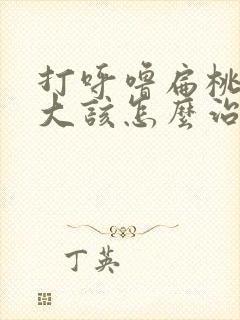 打呼噜扁桃
大该怎麼治
丁英